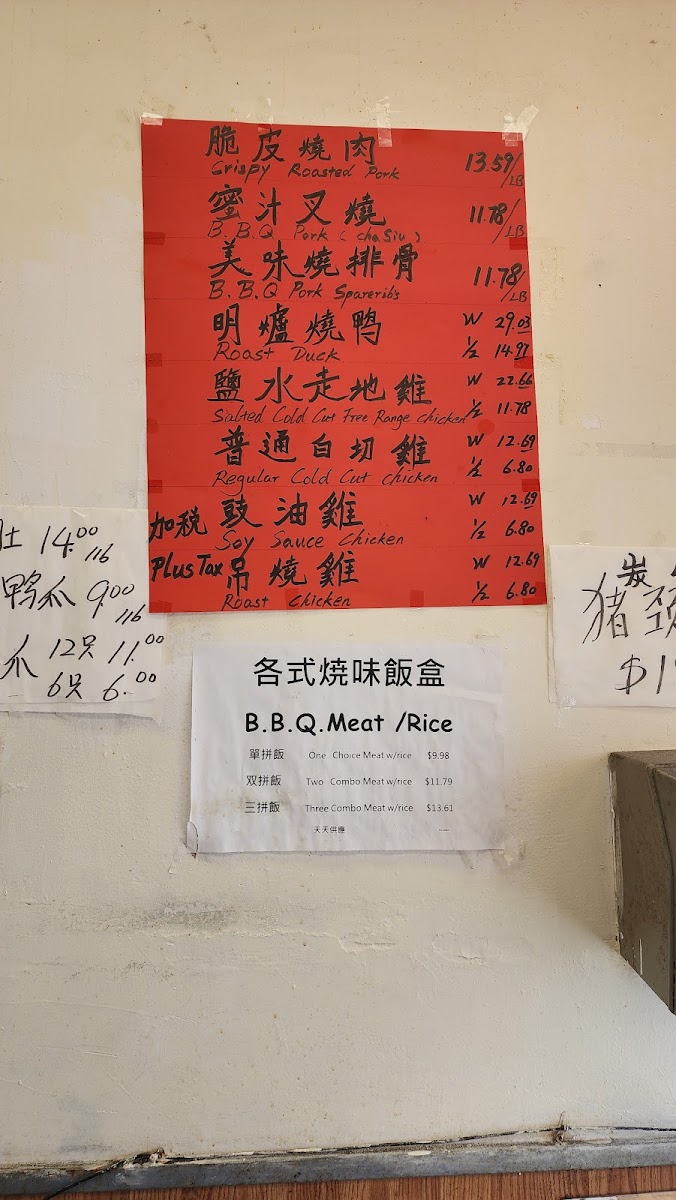 脆皮燒肉 13.59/LB
Crispy Roasted Pork
蜜汁叉燒 11.78/LB
B.B.Q Pork (chaSiu)
美味燒排骨 11.78/LB
B.B.Q Pork Sparerib's
明爐燒鸭 W 29.03
Roast Duck ½ 14.97
鹽水走地雞 W 22.66
Salted Cold Cut Free Range chicken ½ 11.78
普通白切雞 W 12.69
Regular Cold Cut chicken ½ 6.80
加税 豉油雞 W 12.69
Soy Sauce chicken ½ 6.80
Plus Tax 吊燒雞 W 12.69
Roast chicken ½ 6.80
肚 14.00 /lb
鸭爪 9.00 /lb
爪 12只 11.00
6只 6.00
炭
猪颈
$1
各式燒味飯盒
B.B.Q.Meat /Rice
單拼飯 One Choice Meat w/rice $9.98
双拼飯 Two Combo Meat w/rice $11.79
三拼飯 Three Combo Meat w/rice $13.61
天天供應